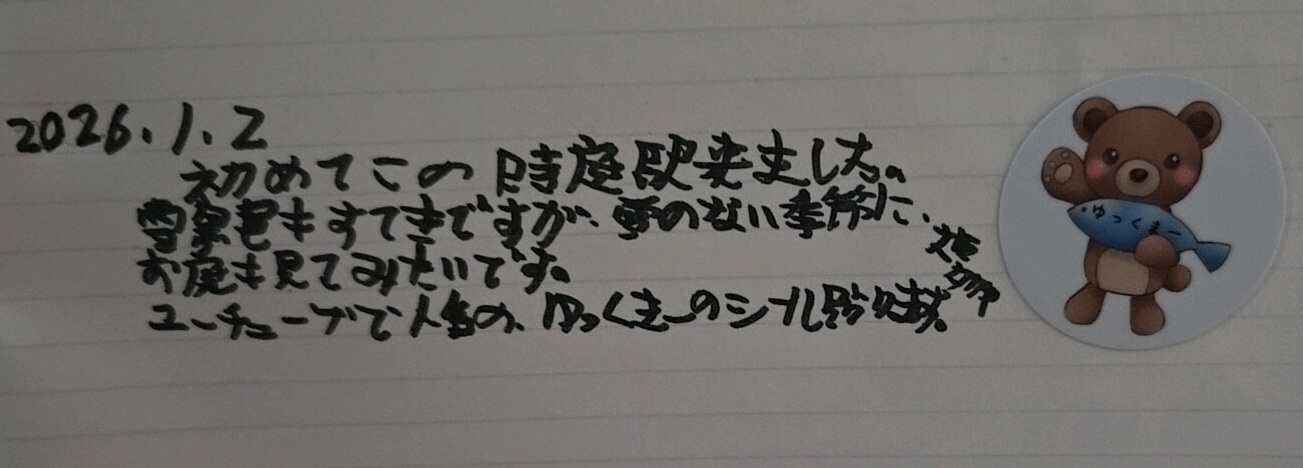 2026.1.2
初めてこの時庭駅来ました。
雪景色もすてきですが、雪のない季節に、
お庭も見てみたいです。
ユーチューブで人気の、ゆっくまーのシール貼ります。
ゆっくまー